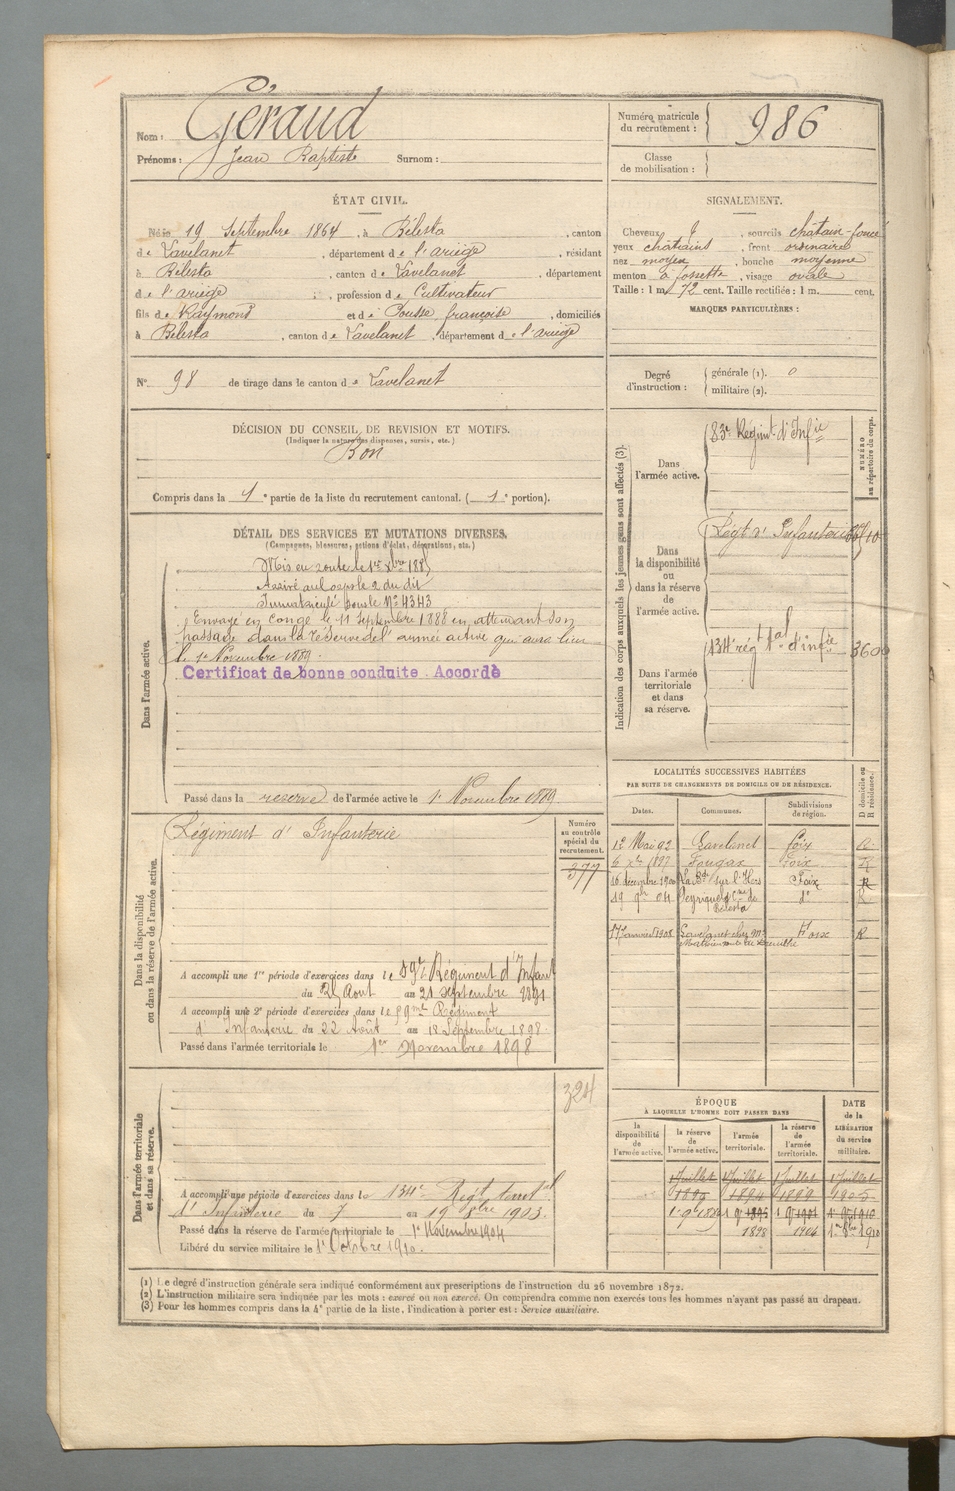 Nom : Géraud
Prénoms : Jean Baptiste Surnom :
Numéro matricule du recrutement : 986
Classe de mobilisation :
ÉTAT CIVIL.
Né le 19 Septembre 1864, à Bélesta, canton
de Lavelanet, département de l'ariège, résidant
à Bélesta, canton de Lavelanet, département
de l'ariège, profession de Cultivateur
fils de Raymond et de Pousse françoise, domiciliés
à Bélesta, canton de Lavelanet, département de l'ariège
N° 98 de tirage dans le canton de Lavelanet
SIGNALEMENT.
Cheveux, sourcils châtain-foncé
yeux châtains, front ordinaire
nez moyen, bouche moyenne
menton à fossette, visage ovale
Taille : 1 m. 72 cent. Taille rectifiée : 1 m. cent.
MARQUES PARTICULIÈRES :
Degré d'instruction : générale (1). 0
militaire (2).
DÉCISION DU CONSEIL DE REVISION ET MOTIFS.
(Indiquer la nature des dispenses, sursis, etc.)
Bon
Compris dans la 1e partie de la liste du recrutement cantonal. (1e portion).
DÉTAIL DES SERVICES ET MUTATIONS DIVERSES.
(Campagnes, blessures, actions d'éclat, décorations, etc.)
Dans l'armée active.
Mis en route le 1er Xbre 1885
Arrivé au Corps le 2 du dit
Immatriculé sous le N° 4343
Envoyé en congé le 11 Septembre 1888 en attendant son
passage dans la réserve de l'armée active qui aura lieu
le 1er Novembre 1889.
Certificat de bonne conduite Accordé
Passé dans la reserve de l'armée active le 1er Novembre 1889
Indication des corps auxquels les jeunes gens sont affectés (3).
NUMÉRO au répertoire du corps.
Dans l'armée active.
83e Regimt d'Infie
Dans la disponibilité ou dans la réserve de l'armée active.
Régt d'Infanterie
Dans l'armée territoriale et dans sa réserve.
134e régt tal d'infie
360
LOCALITÉS SUCCESSIVES HABITÉES
PAR SUITE DE CHANGEMENTS DE DOMICILE OU DE RÉSIDENCE.
Dates. Communes. Subdivisions de région. D domicile ou R résidence.
1er Mai 92 Lavelanet Foix
6 Xbre 1897 Fougax Foix R
16 décembre 1900 La Bde sur l'Hers Foix R
19 9bre 04 Peyriquels Cne de Bélesta do R
17 janvier 1908 Lavelanet chez Mr Foix R
Dans la disponibilité ou dans la réserve de l'armée active.
Régiment d'Infanterie
Numéro au contrôle spécial du recrutement.
377
A accompli une 1re période d'exercices dans le 59e Régiment d'Infant
du 25 Aout au 21 septembre 1891
A accompli une 2e période d'exercices dans le 59me Régiment
d'Infanterie du 22 Août au 18 Septembre 1898.
Passé dans l'armée territoriale le 1er Novembre 1898
Dans l'armée territoriale et dans sa réserve.
324
A accompli une période d'exercices dans le 134e Régt territal
d'Infanterie du 7 au 19 8bre 1903.
Passé dans la réserve de l'armée territoriale le 1er Novembre 1904
Libéré du service militaire le 1er Octobre 1910.
ÉPOQUE
À LAQUELLE L'HOMME DOIT PASSER DANS
DATE de la LIBÉRATION du service militaire.
la disponibilité de l'armée active. la réserve de l'armée active. l'armée territoriale. la réserve de l'armée territoriale.
1 Juillet 1 Juillet 1 Juillet 1 Juillet
1890 1894 1899 1905
1 9bre 1889 1 9bre 1895 1 9bre 1901 1er 9bre 1910
1898 1904 1er 8bre 1910
(1) Le degré d'instruction générale sera indiqué conformément aux prescriptions de l'instruction du 26 novembre 1872.
(2) L'instruction militaire sera indiquée par les mots : exercé ou non exercé. On comprendra comme non exercés tous les hommes n'ayant pas passé au drapeau.
(3) Pour les hommes compris dans la 4e partie de la liste, l'indication à porter est : Service auxiliaire.